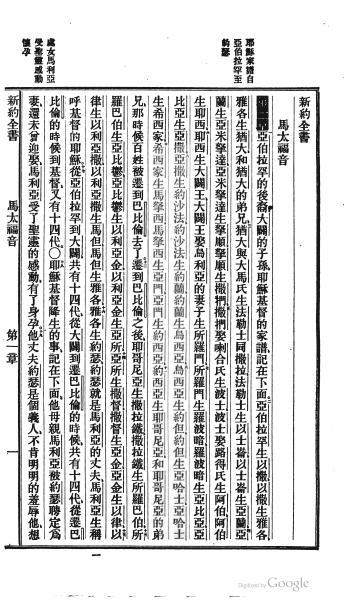 耶穌家譜自
亞伯拉罕至
約瑟
處女馬利亞
受聖靈感動
懷孕
新約全書
馬太福音
第一章 亞伯拉罕的後裔大闢的子孫耶穌基督的家譜記在下面亞伯拉罕生以撒以撒生雅各
雅各生猶大和猶大的弟兄猶大與大馬氏生法勒士同撒拉法勒士生以士崙以士崙生亞蘭亞
蘭生亞米拏達亞米拏達生拏順拏順生撒捫撒捫娶喇合氏生波士波士娶路得氏生阿伯阿伯
生耶西耶西生大闢王大闢王娶烏利亞的妻子生所羅門所羅門生羅波暗羅波暗生亞比亞亞
比亞生亞撒亞撒生約沙法約沙法生約蘭約蘭生烏西亞烏西亞生約但約但生亞哈士亞哈士
生希西家希西家生馬拏西馬拏西生亞們亞們生約西亞約西亞生耶哥尼亞和耶哥尼亞的弟
兄那時候百姓被遷到巴比倫去了遷到巴比倫之後耶哥尼亞生撒拉鐵撒拉鐵生所羅巴伯所
羅巴伯生亞比鬱亞比鬱生以利亞金以利亞金生亞所亞所生撒督撒督生亞金亞金生以律以
律生以利亞撒以利亞撒生馬但馬但生雅各雅各生約瑟約瑟就是馬利亞的丈夫馬利亞生稱
呼基督的耶穌從亞伯拉罕到大闢共有十四代從大闢到遷巴比倫的時候共有十四代從遷巴
比倫的時候到基督又有十四代〇耶穌基督降生的事記在下面他母親馬利亞被約瑟聘定為
妻還未曾迎娶馬利亞受了聖靈的感動有了身孕他丈夫約瑟是個義人不肯明明的羞辱他想
新約全書 馬太福音 第一章 一
Digitized by Google